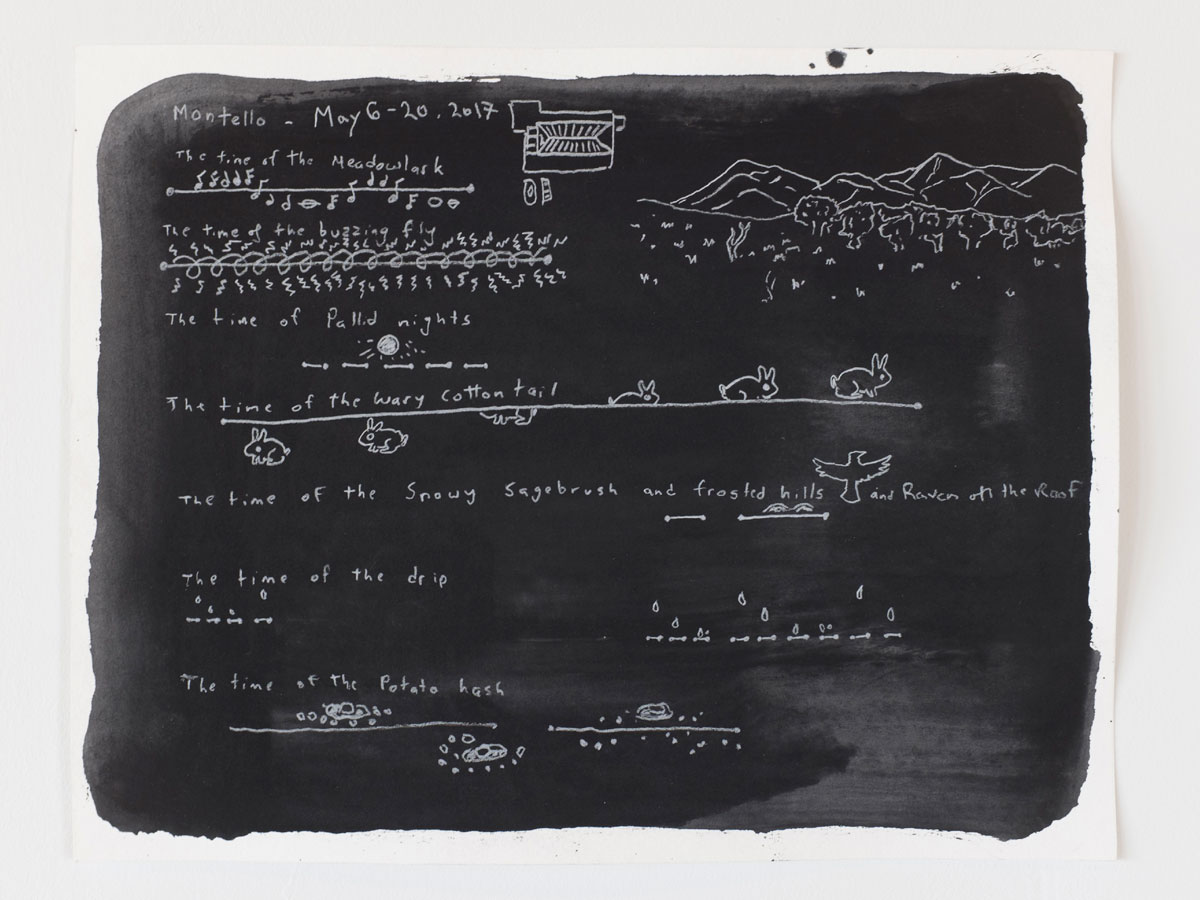 Montello - May 6-20, 2017
The time of the Meadowlark
The time of the buzzing fly
The time of Pallid nights
The time of the wary cottontail
The time of the Snowy Sagebrush and frosted hills and Raven on the Roof
The time of the drip
The time of the Potato hash